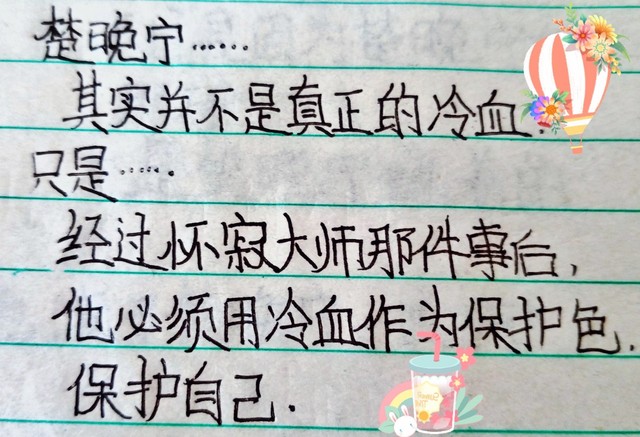 楚晚宁……
其实并不是真正的冷血.
只是……
经过怀寂大师那件事后,
他必须用冷血作为保护色.
保护自己.